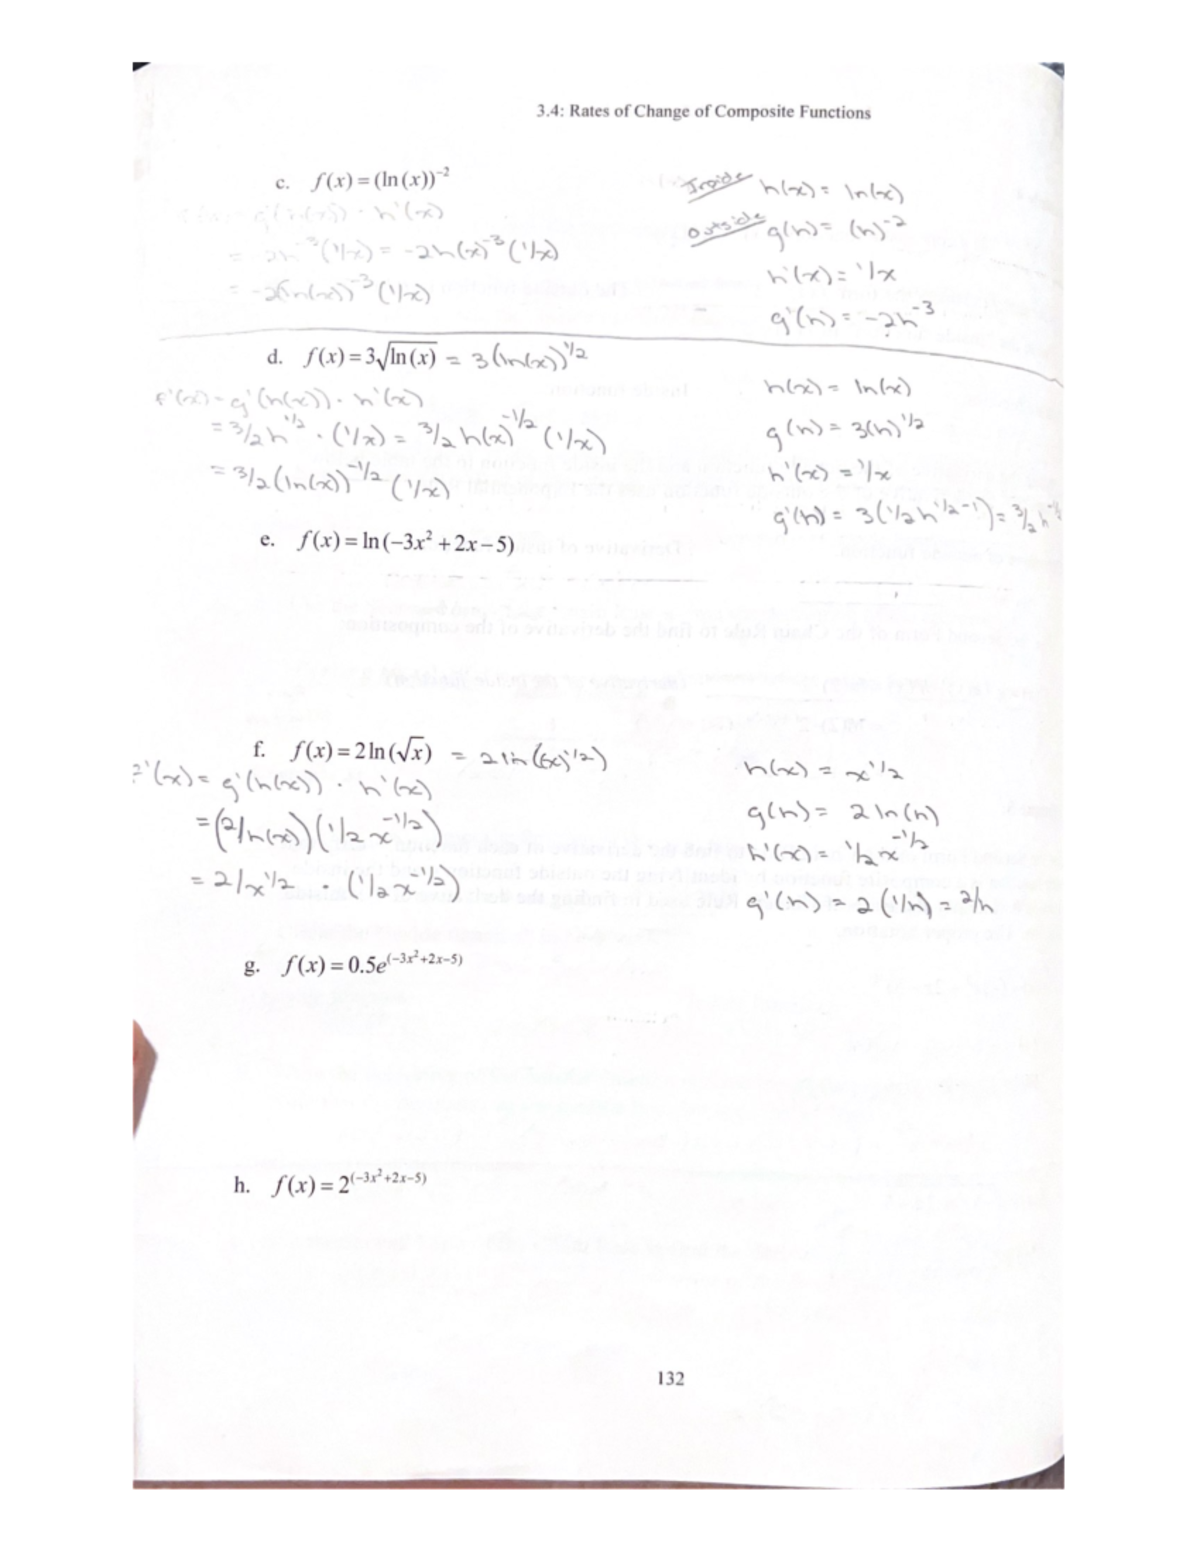 3.4: Rates of Change of Composite Functions
c. f(x) = (ln(x))⁻²
Inside h(x) = ln(x)
g'(h(x)) · h'(x)
outside g(h) = (h)⁻²
= -2h⁻³ (1/x) = -2h(x)⁻³ (1/x)
h'(x) = 1/x
= -2(ln(x))⁻³ (1/x)
g'(h) = -2h⁻³
d. f(x) = 3√ln(x) = 3(ln(x))^1/2
h(x) = ln(x)
f'(x) = g'(h(x)) · h'(x)
g(h) = 3(h)^1/2
= 3/2 h^1/2 · (1/x) = 3/2 h(x)^-1/2 (1/x)
h'(x) = 1/x
= 3/2 (ln(x))^-1/2 (1/x)
g'(h) = 3(1/2 h^1/2-1) = 3/2 h
e. f(x) = ln(-3x² + 2x - 5)
f. f(x) = 2ln(√x) = 2 ln((x)^1/2)
h(x) = x^1/2
'(x) = g'(h(x)) · h'(x)
g(h) = 2 ln(h)
= (2/h(x)) (1/2 x^-1/2)
h'(x) = 1/2 x^-1/2
= 2/x^1/2 · (1/2 x^-1/2)
g'(h) = 2 (1/h) = 2/h
g. f(x) = 0.5e^(-3x²+2x-5)
h. f(x) = 2^(-3x²+2x-5)
132